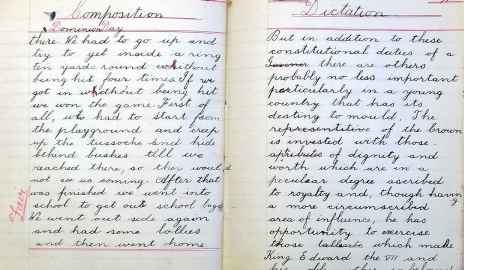 Composition
Dominion Day
there. We had to go up and
try to get inside a ring
ten yards round without
being hit four times. If we
got in without being hit
we won the game. First of
all, we had to start from
the playground and creep
up the tussocks and hide
behind bushes till we
reached there, so they would
not see us coming. After that
was finished we went into
school to get out school bags
We went out side again
and had some lollies
and then went home
Dictation
But in addition to these
constitutional duties of a
there are others
probably no less important
particularly in a young
country that has its
destiny to mould. The
representitive of the Crown
is invested with those
attributes of dignity and
worth which are in a
peculiar degree ascribed
to royalty and, though having
a more circumscribed
area of influence, he has
opportunity to exercise
those talents which make
King Edward the VII and